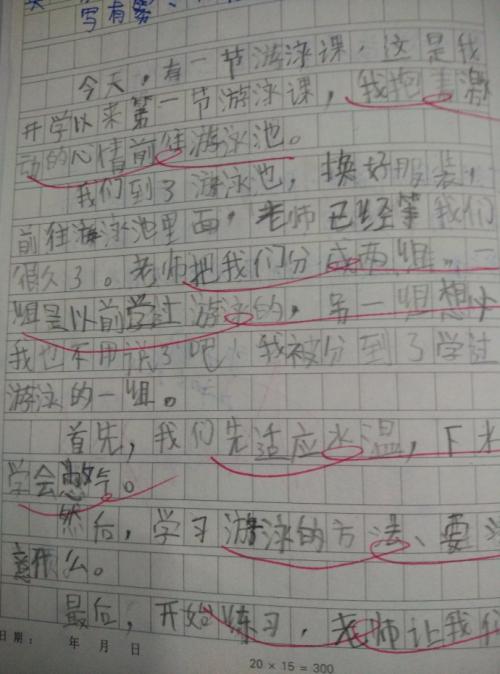 写有雾、
今天,有一节游泳课,这是我
开学以来第一节游泳课,我抱着激
动的心情前往游泳池。
我们到了游泳池,换好服装,
前往游泳池里面,老师已经等我们
很久了。老师把我们分成两组。一
组是以前学过游泳的,另一组想必
我也不用说了吧,我被分到了学过
游泳的一组。
首先,我们先适应水温,下水
学会憋气。
然后,学习游泳的方法、要注
意什么。
最后,开始练习,老师让我们
日期： 年 月 日
20 × 15 = 300